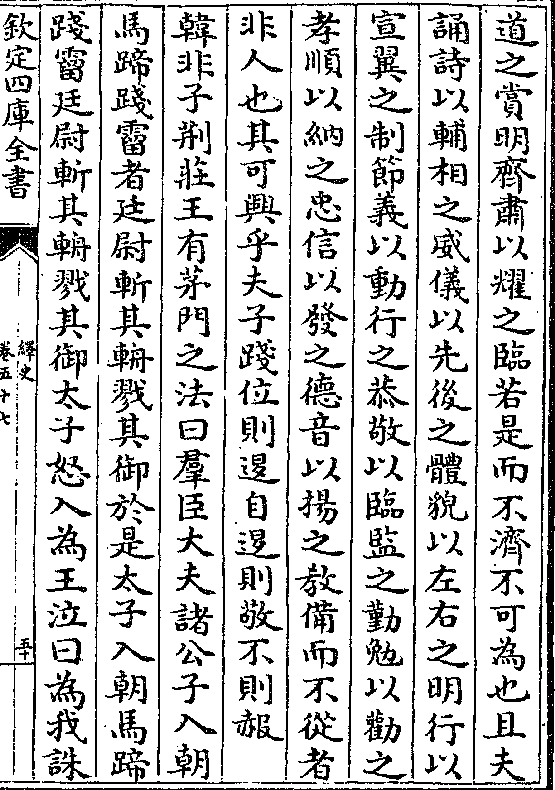 道之賞明齊肅以耀之臨若是而不濟不可為也且夫
誦詩以輔相之威儀以先後之體貌以左右之明行以
宣翼之制節義以動行之恭敬以臨監之勤勉以勸之
孝順以納之忠信以發之德音以揚之教備而不從者
非人也其可興乎夫子踐位則退自退則敬不則赧
韓非子荆莊王有茅門之法曰羣臣大夫諸公子入朝
馬蹄踐霤者廷尉斬其輈戮其御於是太子入朝馬蹄
踐霤廷尉斬其輈戮其御太子怒入為王泣曰為我誅
欽定四庫全書
繹史
卷五十七
五十